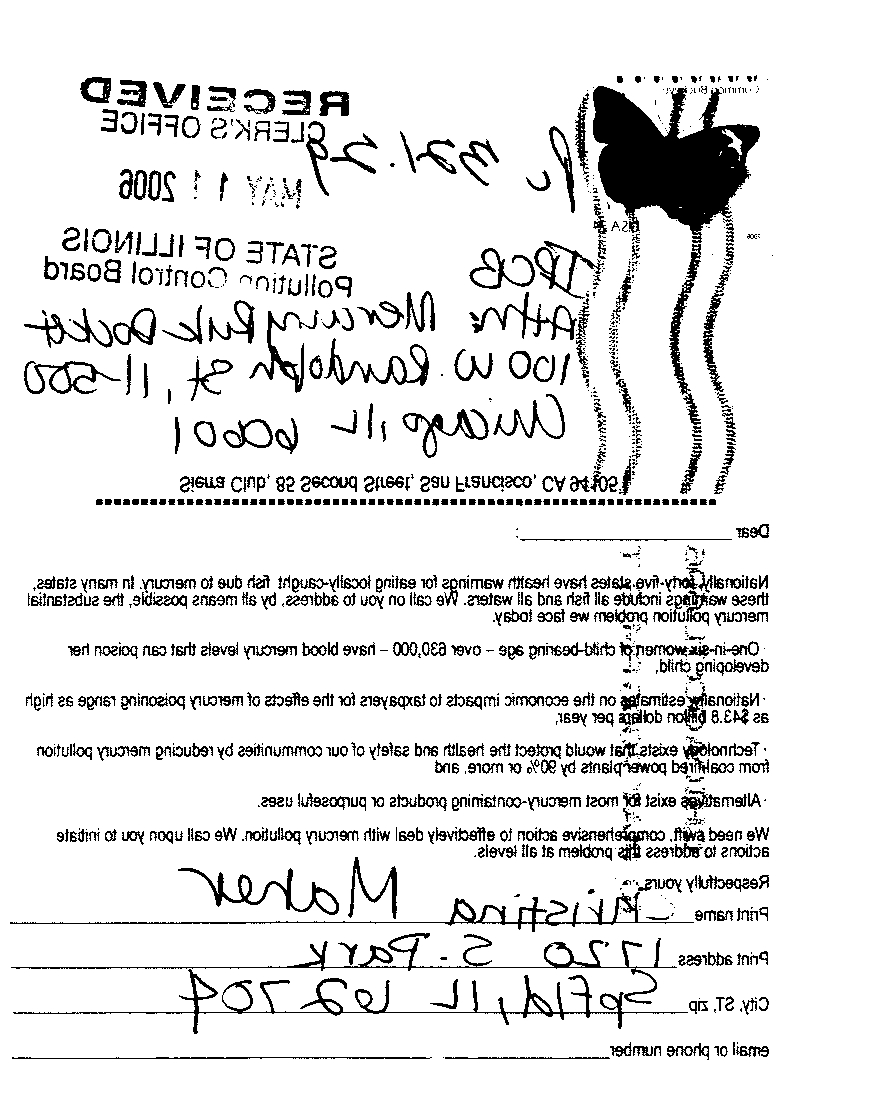 RECEIVED
CLERK'S OFFICE
MAY 11 2006
STATE OF ILLINOIS
Pollution Control Board
Common Buckeye
USA
2006
IPCB
Attn: Mercury Rule Docket
100 W. Randolph St, 11-500
Chicago, IL 60601
Sierra Club, 85 Second Street, San Francisco, CA 94105
Dear :
Nationally, forty-five states have health warnings for eating locally-caught fish due to mercury. In many states,
these warnings include all fish and all waters. We call on you to address, by all means possible, the substantial
mercury pollution problem we face today.
· One-in-six women of child-bearing age – over 630,000 – have blood mercury levels that can poison her
developing child,
· Nationally estimates on the economic impacts to taxpayers for the effects of mercury poisoning range as high
as $43.8 billion dollars per year,
· Technology exists that would protect the health and safety of our communities by reducing mercury pollution
from coal-fired power plants by 90% or more, and
· Alternatives exist for most mercury-containing products or purposeful uses.
We need swift, comprehensive action to effectively deal with mercury pollution. We call upon you to initiate
actions to address this problem at all levels.
Respectfully yours,
Print name Christina Maher
Print address 1720 S. Park
City, ST, zip Spfld, IL 62704
email or phone number